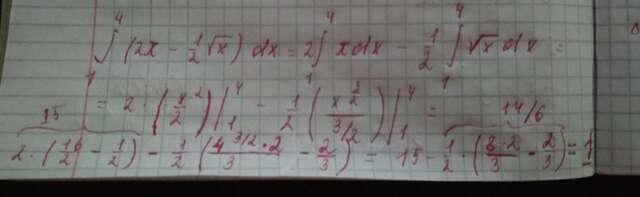 ∫₁⁴ (2x - 1/2 √x) dx = 2 ∫₁⁴ x dx - 1/2 ∫₁⁴ √x dx =
= 2 · (x²/2) |₁⁴ - 1/2 (x^(3/2) / (3/2)) |₁⁴ =
15 14/6
2 · (16/2 - 1/2) - 1/2 (4^(3/2) · 2 / 3 - 2/3) = 15 - 1/2 · (8·2/3 - 2/3) =